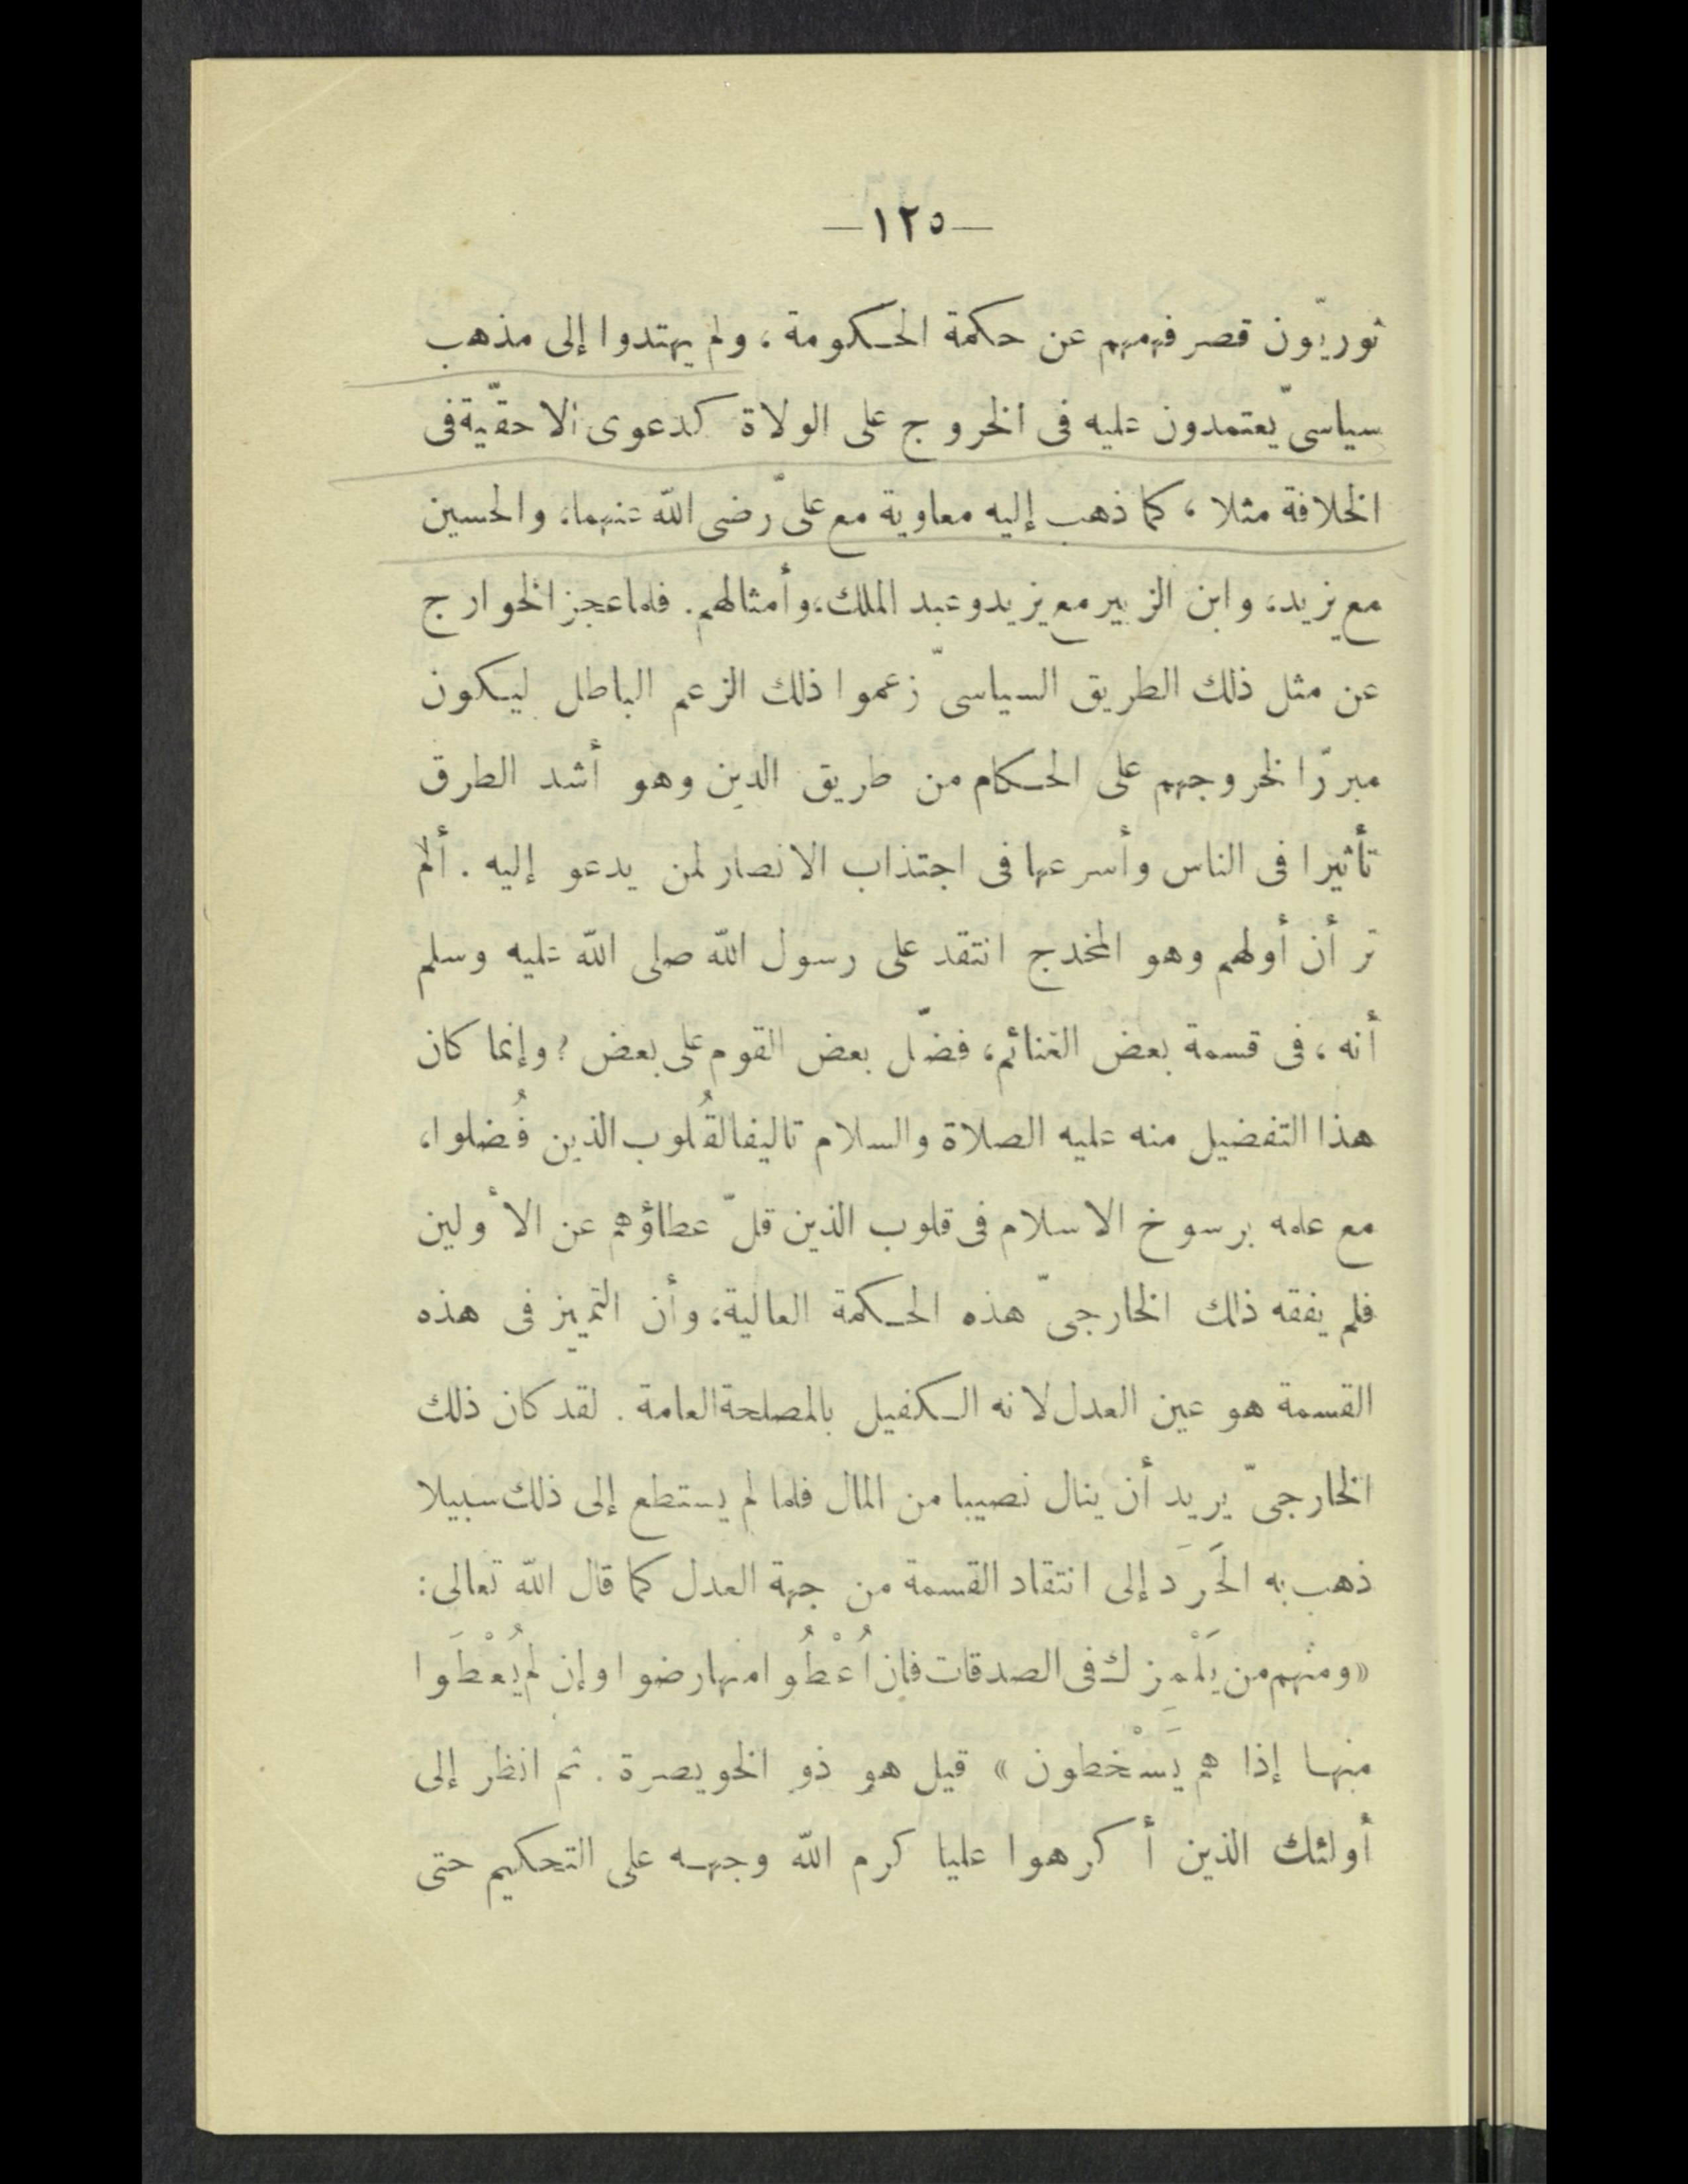 —١٢٥—
ثوريّون قصر فهمهم عن حكمة الحكومة ، ولم يهتدوا إلى مذهب
سياسىّ يعتمدون عليه فى الخروج على الولاة كدعوى الاحقّية فى
الخلافة مثلا ، كما ذهب إليه معاوية مع علىّ رضى الله عنهما، والحسين
مع يزيد، وابن الزبير مع يزيد وعبد الملك، وأمثالهم. فلما عجز الخوارج
عن مثل ذلك الطريق السياسىّ زعموا ذلك الزعم الباطل ليكون
مبررّا لخروجهم على الحكام من طريق الدين وهو أشد الطرق
تأثيرا فى الناس وأسرعها فى اجتذاب الانصار لمن يدعو إليه . ألم
تر أن أولهم وهو المخدج انتقد على رسول الله صلى الله عليه وسلم
أنه ، فى قسمة بعض الغنائم، فضّل بعض القوم على بعض ؟ وإنما كان
هذا التفضيل منه عليه الصلاة والسلام تاليفا لقُلوب الذين فُضلوا،
مع علمه برسوخ الاسلام فى قلوب الذين قلّ عطاؤهم عن الأولين
فلم يفقه ذلك الخارجىّ هذه الحكمة العالية، وأن التمييز فى هذه
القسمة هو عين العدل لانه الكفيل بالمصلحة العامة . لقد كان ذلك
الخارجىّ يريد أن ينال نصيبا من المال فلما لم يستطع إلى ذلك سبيلا
ذهب به الحَرَد إلى انتقاد القسمة من جهة العدل كما قال الله تعالى:
«ومنهم من يَلْمِزك فى الصدقات فإن اُعْطُوا منها رضوا وإن لم يُعْطَوا
منها إذا هم يَسْخَطون » قيل هو ذو الخويصرة . ثم انظر إلى
أولئك الذين أكرهوا عليا كرم الله وجهه على التحكيم حتى